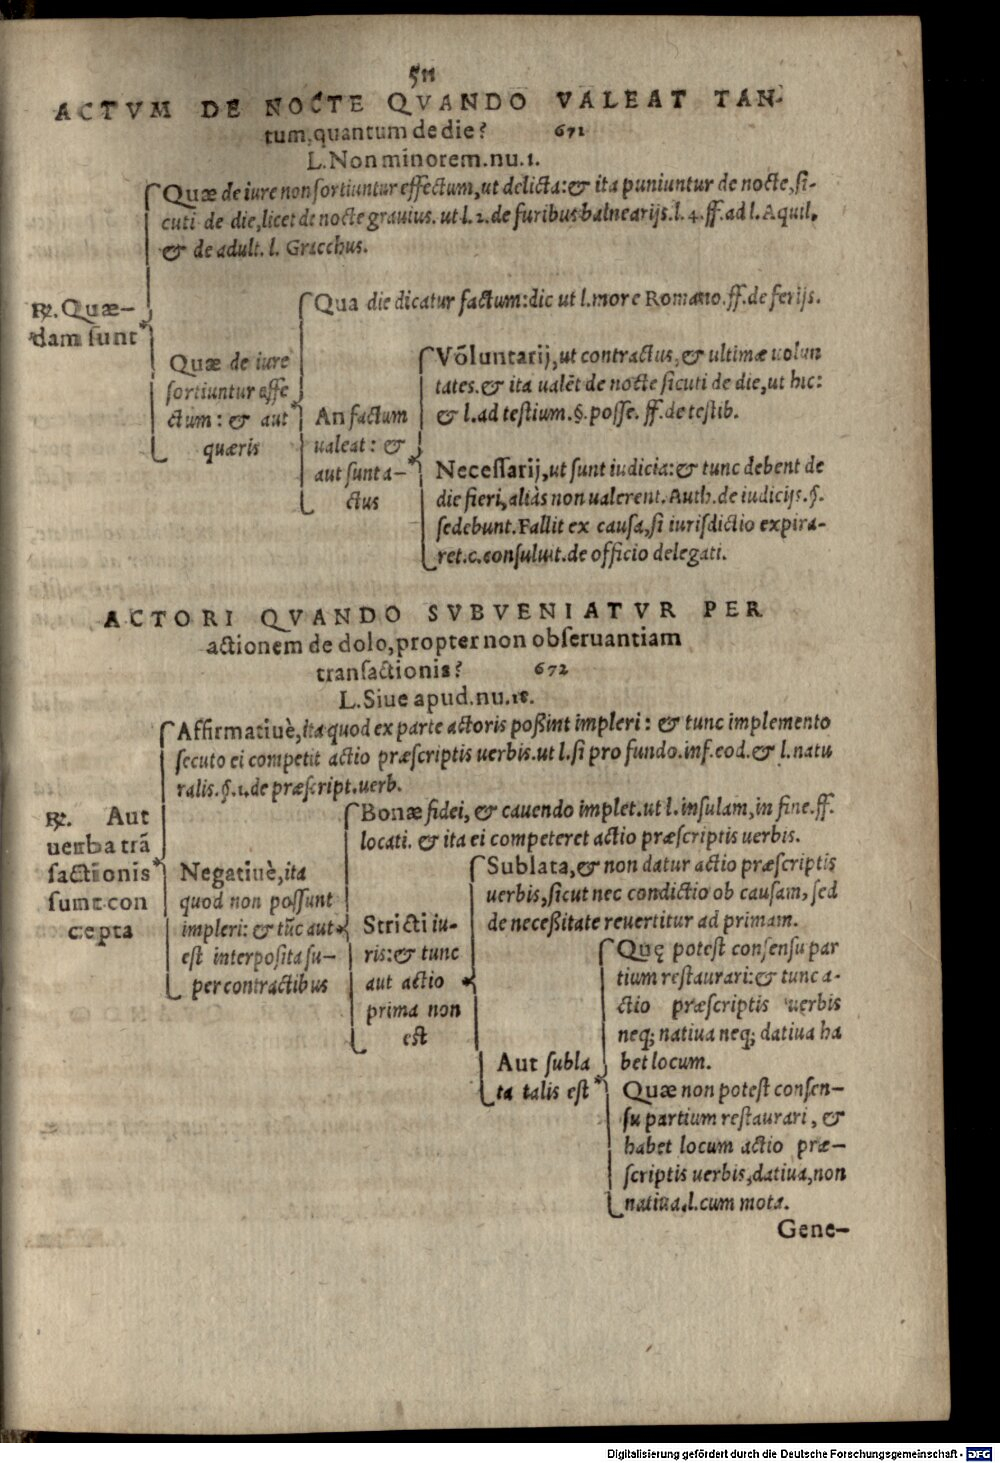 511
ACTVM DE NOCTE QVANDO VALEAT TAN-
tum, quantum de die? 671
L. Non minorem. nu. 1.
Quæ de iure non sortiuntur effectum, ut delicta: & ita puniuntur de nocte, si-
cuti de die, licet de nocte grauius. ut l. 2. de furibus balnearijs. l. 4. ff. ad l. Aquil.
& de adult. l. Gracchus.
R̃. Quæ-
dam sunt
Qua die dicatur factum: dic ut l. more Romano. ff. de ferijs.
Quæ de iure
sortiuntur effe
ctum: & aut
quæris
An factum
ualeat: &
aut sunt a-
ctus
Volũntarij, ut contractus, & ultimæ uolun
tates. & ita ualẽt de nocte sicuti de die, ut hic:
& l. ad testium. §. posse. ff. de testib.
Necessarij, ut sunt iudicia: & tunc debent de
die fieri, aliàs non ualerent. Auth. de iudicijs. §.
sedebunt. Fallit ex causa, si iurisdictio expira-
ret. c. consuluit. de officio delegati.
ACTORI QVANDO SVBVENIATVR PER
actionem de dolo, propter non obseruantiam
transactionis? 672
L. Siue apud. nu. 18.
Affirmatiuè, ita quod ex parte actoris poßint impleri: & tunc implemento
secuto ei competit actio præscriptis uerbis. ut l. si pro fundo. inf. eod. & l. natu
ralis. §. 1. de præscript. uerb.
R̃. Aut
uerba trã
sactionis
sunt con
cepta
Bonæ fidei, & cauendo implet. ut l. insulam, in fine. ff.
locati. & ita ei competeret actio præscriptis uerbis.
Negatiuè, ita
quod non possunt
impleri: & tũc aut
est interposita su-
per contractibus
Stricti iu-
ris: & tunc
aut actio
prima non
est
Sublata, & non datur actio præscriptis
uerbis, sicut nec condictio ob causam, sed
de neceßitate reuertitur ad primam.
Aut subla
ta talis est
Quę potest consensu par
tium restaurari: & tunc a-
ctio præscriptis uerbis
neq; natiua neq; datiua ha
bet locum.
Quæ non potest consen-
su partium restaurari, &
habet locum actio præ-
scriptis uerbis, datiua, non
natiua. l. cum mota.
Gene-
Digitalisierung gefördert durch die Deutsche Forschungsgemeinschaft - DFG